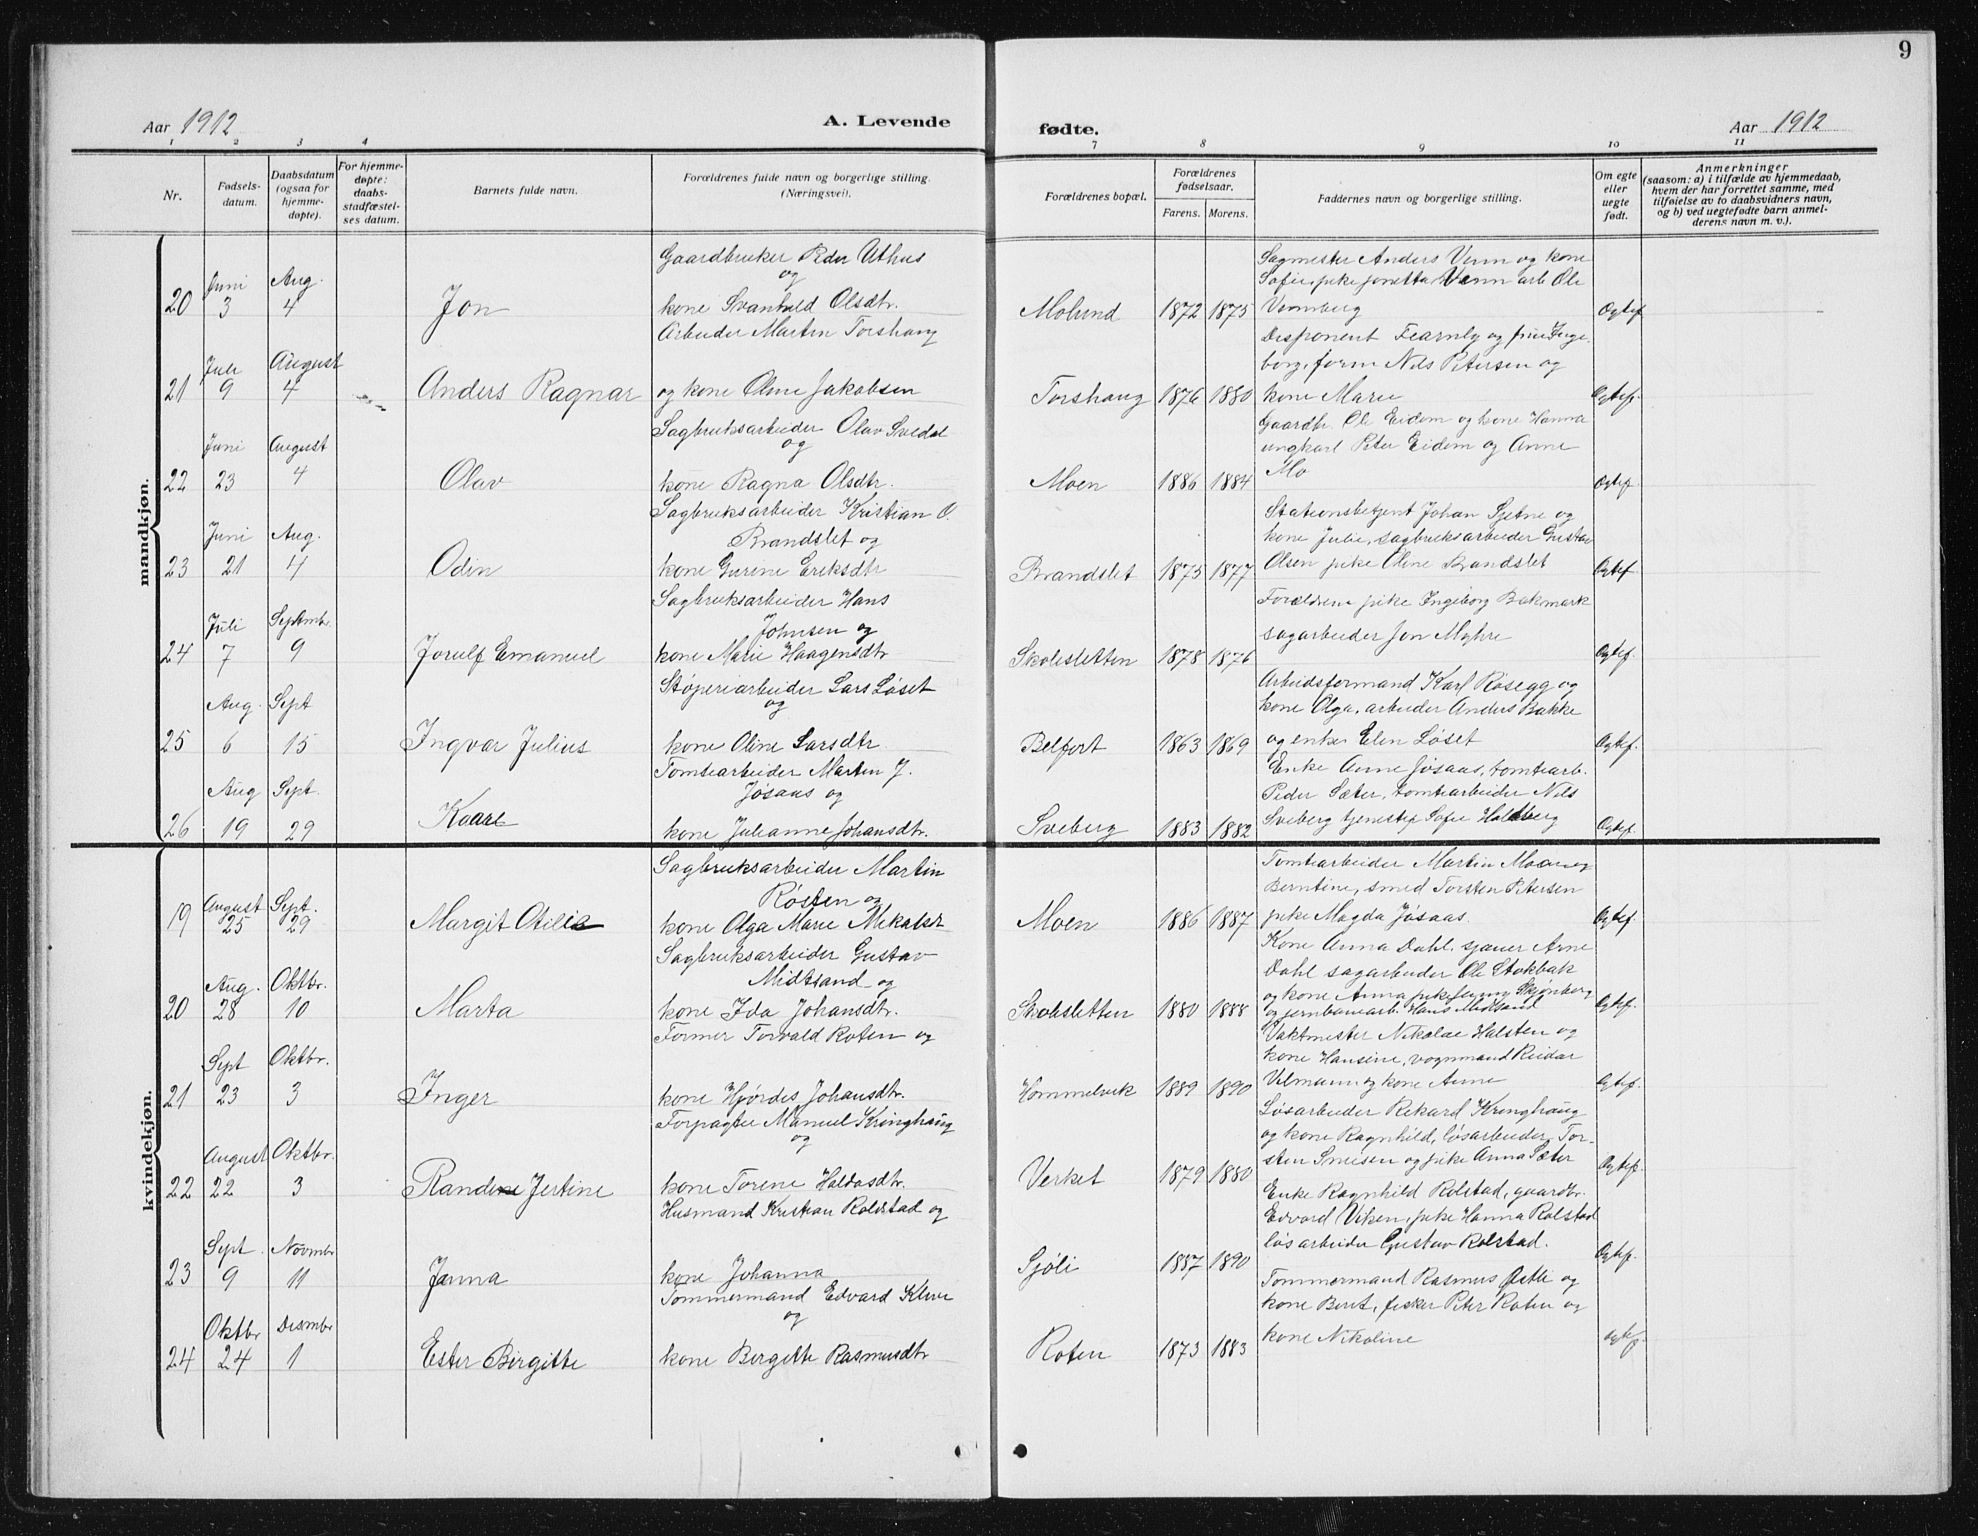 9
Aar 1912
A. Levende
fødte.
Aar 1912
1 2 3 4 7 8 9 10 11
Nr.
Fødsels-
datum.
Daabsdatum
(ogsaa for
hjemme-
døpte).
For hjemme-
døpte:
daabs-
stadfæstel-
ses datum.
Barnets fulde navn.
Forældrenes fulde navn og borgerlige stilling.
(Næringsvei).
Forældrenes bopæl.
Forældrenes
fødselsaar.
Farens. Morens.
Faddernes navn og borgerlige stilling.
Om egte
eller
uegte
født.
Anmerkninger
(saasom: a) i tilfælde av hjemmedaab,
hvem der har forrettet samme, med
tilføielse av to daabsvidners navn,
og b) ved uegtefødte barn anmel-
derens navn m. v.).
mandkjøn.
20 Juni 3 Aug. 4 Jon
Gaardbruker Peder Uthus
og
kone Svanhild Olsdtr.
Molund 1872 1875
Sagmester Anders Venn og kone
Sofie, pike Jonetta Venn arb Ole
Vennberg
Egtef
21 Juli 9 August 4 Anders Ragnar
Arbeider Martin Torshaug
og kone Oline Jakobsen
Torshaug 1876 1880
Disponent Fearnly og frue Inge
borg, form Nils Petersen og
kone Marie
Egtef.
22 Juni 23 August 4 Olav
Sagbruksarbeider Olav Svedal
og
kone Ragna Olsdtr.
Moen 1886 1884
Gaardbr. Ole Eidem og kone Hanna
ungkarl Peter Eidem og Anne
Mo
Egtef.
23 Juni 21 Aug. 4 Odin
Sagbruksarbeider Kristian O.
Brandslet og
kone Gurine Eriksdtr
Brandslet 1875 1877
Stationsbetjent Johan Sjetne og
kone Julie, sagbruksarbeider Gustav
Olsen pike Oline Brandslet
Egtef
24 Juli 7 Septmbr. 9 Jorulf Emanuel
Sagbruksarbeider Hans
Johnsen og
kone Marie Haagensdtr
Skolesletten 1878 1876
Forældrene pike Ingeborg Bakmark
sagarbeider Jon Myhre
Egtef.
25 Aug. 6 Sept 15 Ingvar Julius
Støperiarbeider Lars Løset
og
kone Oline Larsdtr.
Belfort 1863 1869
Arbeidsformand Karl Rosegg og
kone Olga, arbeider Anders Bakke
og enke Elen Løset
Egtef.
26 Aug 19 Sept. 29 Kaare
Tomtearbeider Martin J.
Jøsaas og
kone Julianne Johansdtr.
Sveberg 1883 1882
Enke Anne Jøsaas, tomtearb.
Peder Sæter, tomtearbeider Nils
Sveberg tjenestep Sofie Haldberg
Egtef.
kvindekjøn.
19 August 25 Sept. 29 Margit Otilie
Sagbruksarbeider Martin
Røsten og
kone Olga Marie Mikalsdtr
Moen 1886 1887
Tomtearbeider Martin Moen og
Berntine, smed Torsten Petersen
pike Magda Jøsaas.
Egtef.
20 Aug. 28 Oktbr. 10 Marta
Sagbruksarbeider Gustav
Midtsand og
kone Ida Johansdtr.
Skolesletten 1880 1888
Kone Anna Dahl, sjauer Arne
Dahl sagarbeider Ole Stokbak
og kone Anna pike Jenny Skjønberg
og jernbanearb. Hans Midtsand
Egtef.
21 Sept 23 Oktbr. 3 Inger
Former Torvald Roten og
kone Hjørdis Johansdtr.
Hommelvik 1889 1890
Vaktmester Nikolae Halsten og
kone Hansine, vognmand Reidar
Velmann og kone Anne
Egtef.
22 August 22 Oktbr. 3 Randine Jertine
Forpagter Manuel Kringhaug
og
kone Torine Haldosdtr.
Verket 1879 1880
Løsarbeider Rikard Kringhaug
og kone Ragnhild, løsarbeider Tor-
sten Smisen og pike Anna Sæter
Egtef.
23 Sept. 9 Novmbr 11 Janna
Husmand Kristian Rolstad og
kone Johanna
Sjøli 1887 1890
Enke Ragnhild Rolstad, gaardbr.
Edvard Viken, pike Hanna Rolstad
løsarbeider Gustav Rolstad.
Egtef.
24 Oktbr 24 Desmbr 1 Ester Birgitte
Tømmermand Edvard Kleve
og
kone Bergitte Rasmusdtr
Roten 1873 1883
Tømmermand Rasmus og
kone Berit, fisker Peter Roten og
kone Nikoline
Egtef.